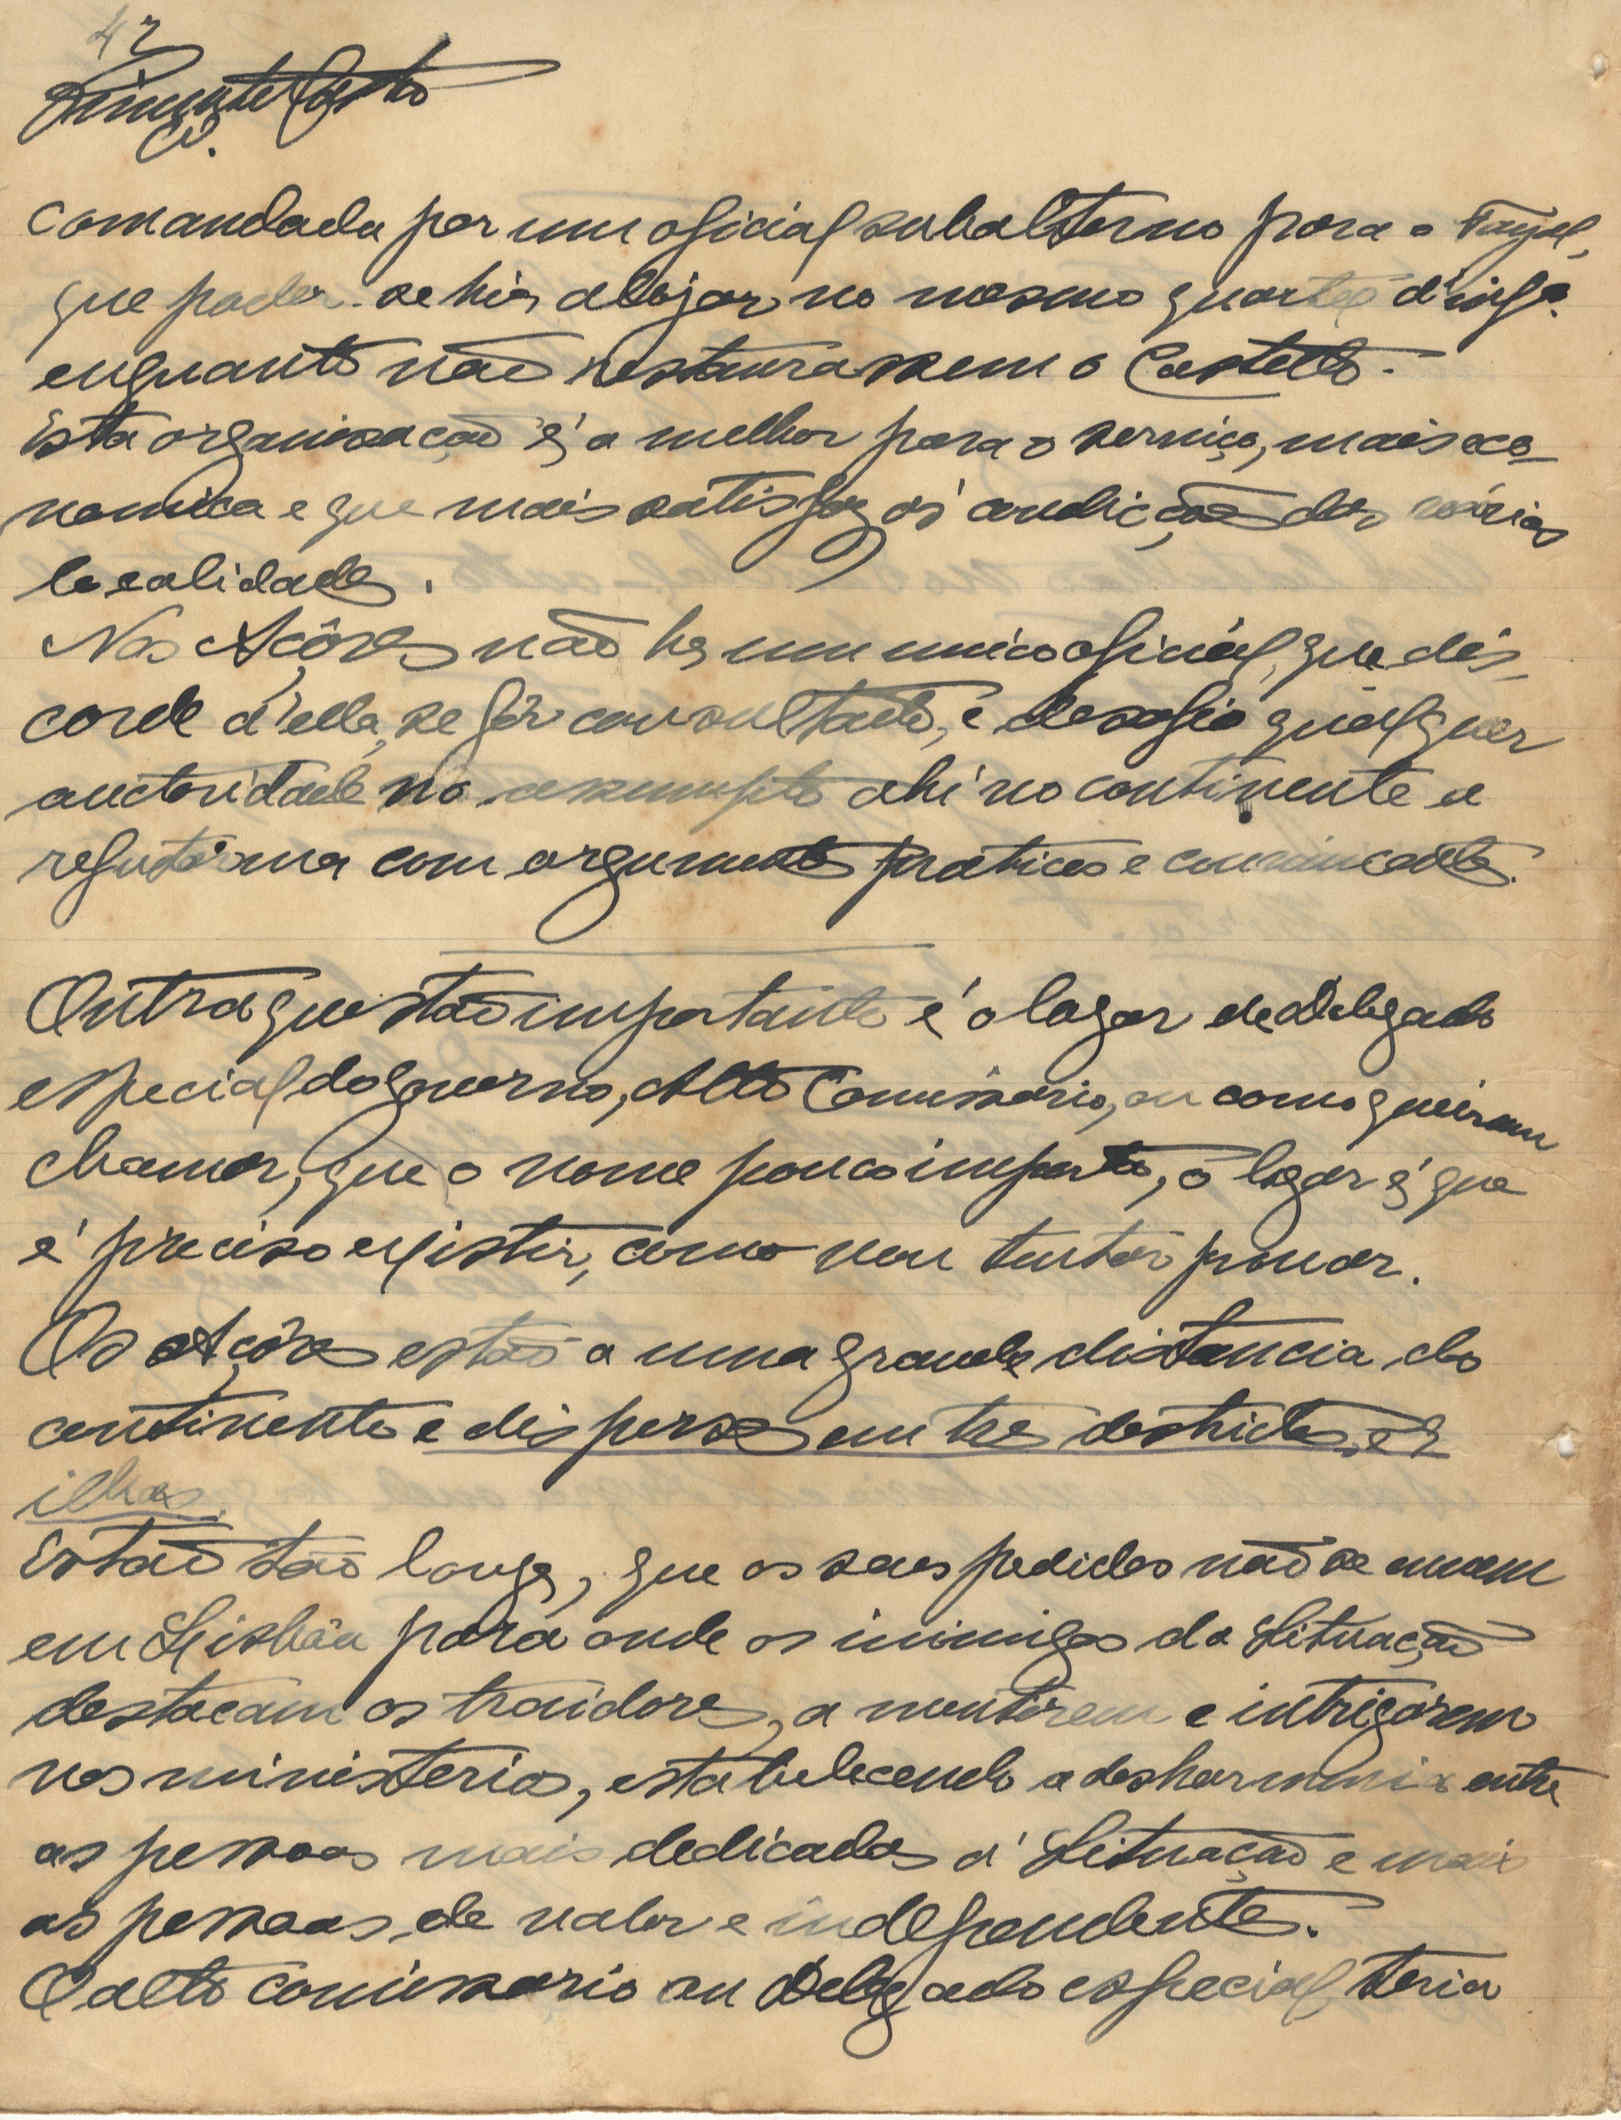 42
Pimenta Castro
C.
comandada por um oficial subalterno para o Fayal,
que poder-se hia alojar no mesmo quartel d'infª.
enquanto não restaurassem o Castello.
Esta organisação é a melhor para o serviço, mais eco-
nomica e que mais satisfaz ás condicções das várias
localidades.
Nos Açôres não ha um unico oficial, que dis-
corde d'ella, se fôr consultado, e desafio qualquer
auctoridade no assumpto ahi no continente a
refutár-ma com argumentos praticos e convincentes.
Outra questão importante é o logar de Delegado
especial do governo, Alto Comissario, ou como queiram
chamar, que o nome pouco importa, o logar é que
é preciso existir, como vou tentar provar.
Os Açôres estão a uma grande distancia do
continente e dispersos em tres destrictos, e 9
ilhas.
Estão tão longe, que os seus pedidos não se ouvem
em Lisbôa para onde os inimigos da Situação
destacam os traidores, a mentirem e intrigárem
nos ministerios, estabelecendo a desharmonia entre
as pessoas mais dedicadas á Situação e mais
as pessoas de valor e independentes.
O alto comissario ou Delegado especial teria